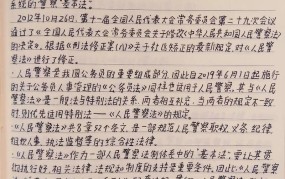 系统的"警察"基本法。
2012年10月26日,第十一届全国人民代表大会常务委员会第二十九次会议
通过了《全国人民代表大会常务委员会关于修改〈中华人民共和国人民警察法〉
的决定》,根据《刑法修正案(八)》关于社区矫正的最新规定,对《人民警察法》
进行了修正。
·人民警察是我国公务员的重要组成部分,因此自2019年6月1日起施行
的关于公务员人事管理的《公务员法》同样也适用于人民警察,其与《人民警
察法》是一般法与特别法的关系,两者相互补充,当两者的规定不一致
时,则优先适用特别法——《人民警察法》的规定。
·《人民警察法》共8章52个条文,是一部规范人民警察职权、义务、纪律、
组织人事、执法监督等的综合性法律。
·《人民警察法》作为一部人民警察法制体系中的"基本法",要让其贯
彻执行好,相关法律、法规和制度的支持是重要条件,因此,《人民